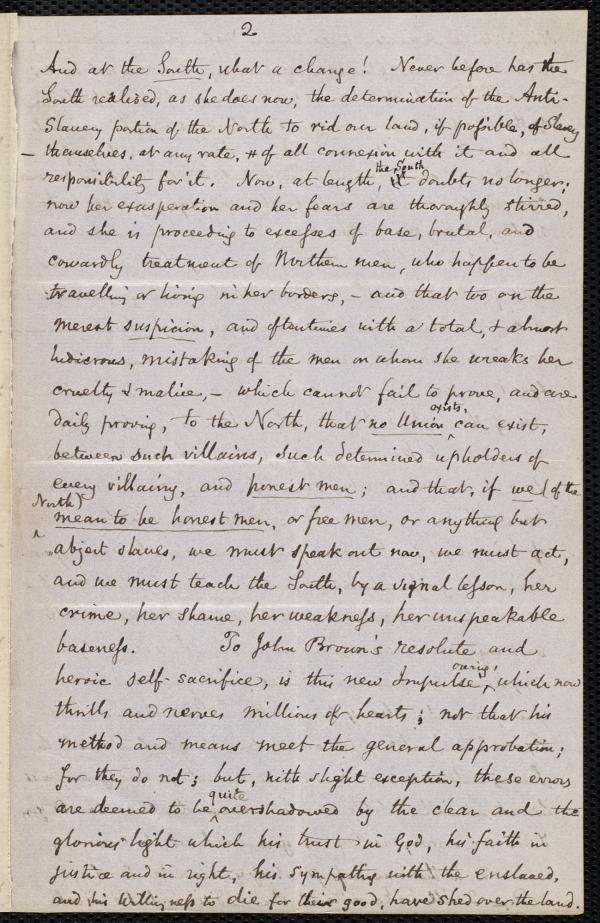 2
And at the South, what a change! Never before has the
South realized, as she does now, the determination of the Anti-
Slavery portion of the North to rid our land, if possible, of Slavery
– themselves, at any rate, of all connexion with it and all
responsibility for it. Now, at length, the South doubts no longer;
now her exasperation and her fears are thoroughly stirred,
and she is proceeding to excesses of base, brutal, and
cowardly treatment of Northern men, who happen to be
travelling or living in her borders, – and that too on the
merest suspicion, and oftentimes with a total, & almost
ludicrous, mistaking of the men on whom she wreaks her
cruelty & malice, – which cannot fail to prove, and are
daily proving, to the North, that no Union exists, can exist,
between such villains, such determined upholders of
every villainy, and honest men; and that, if we (of the
North) mean to be honest men, or free men, or anything but
abject slaves, we must speak out now, we must act,
and we must teach the South, by a signal lesson, her
crime, her shame, her weakness, her unspeakable
baseness. To John Brown's resolute and
heroic self-sacrifice, is this new Impulse owing, which now
thrills and nerves millions of hearts; not that his
method and means meet the general approbation;
for they do not; but, with slight exception, these errors
are deemed to be quite overshadowed by the clear and the
glorious light which his trust in God, his faith in
justice and in right, his sympathy with the enslaved,
and his willingness to die for their good, have shed over the land.